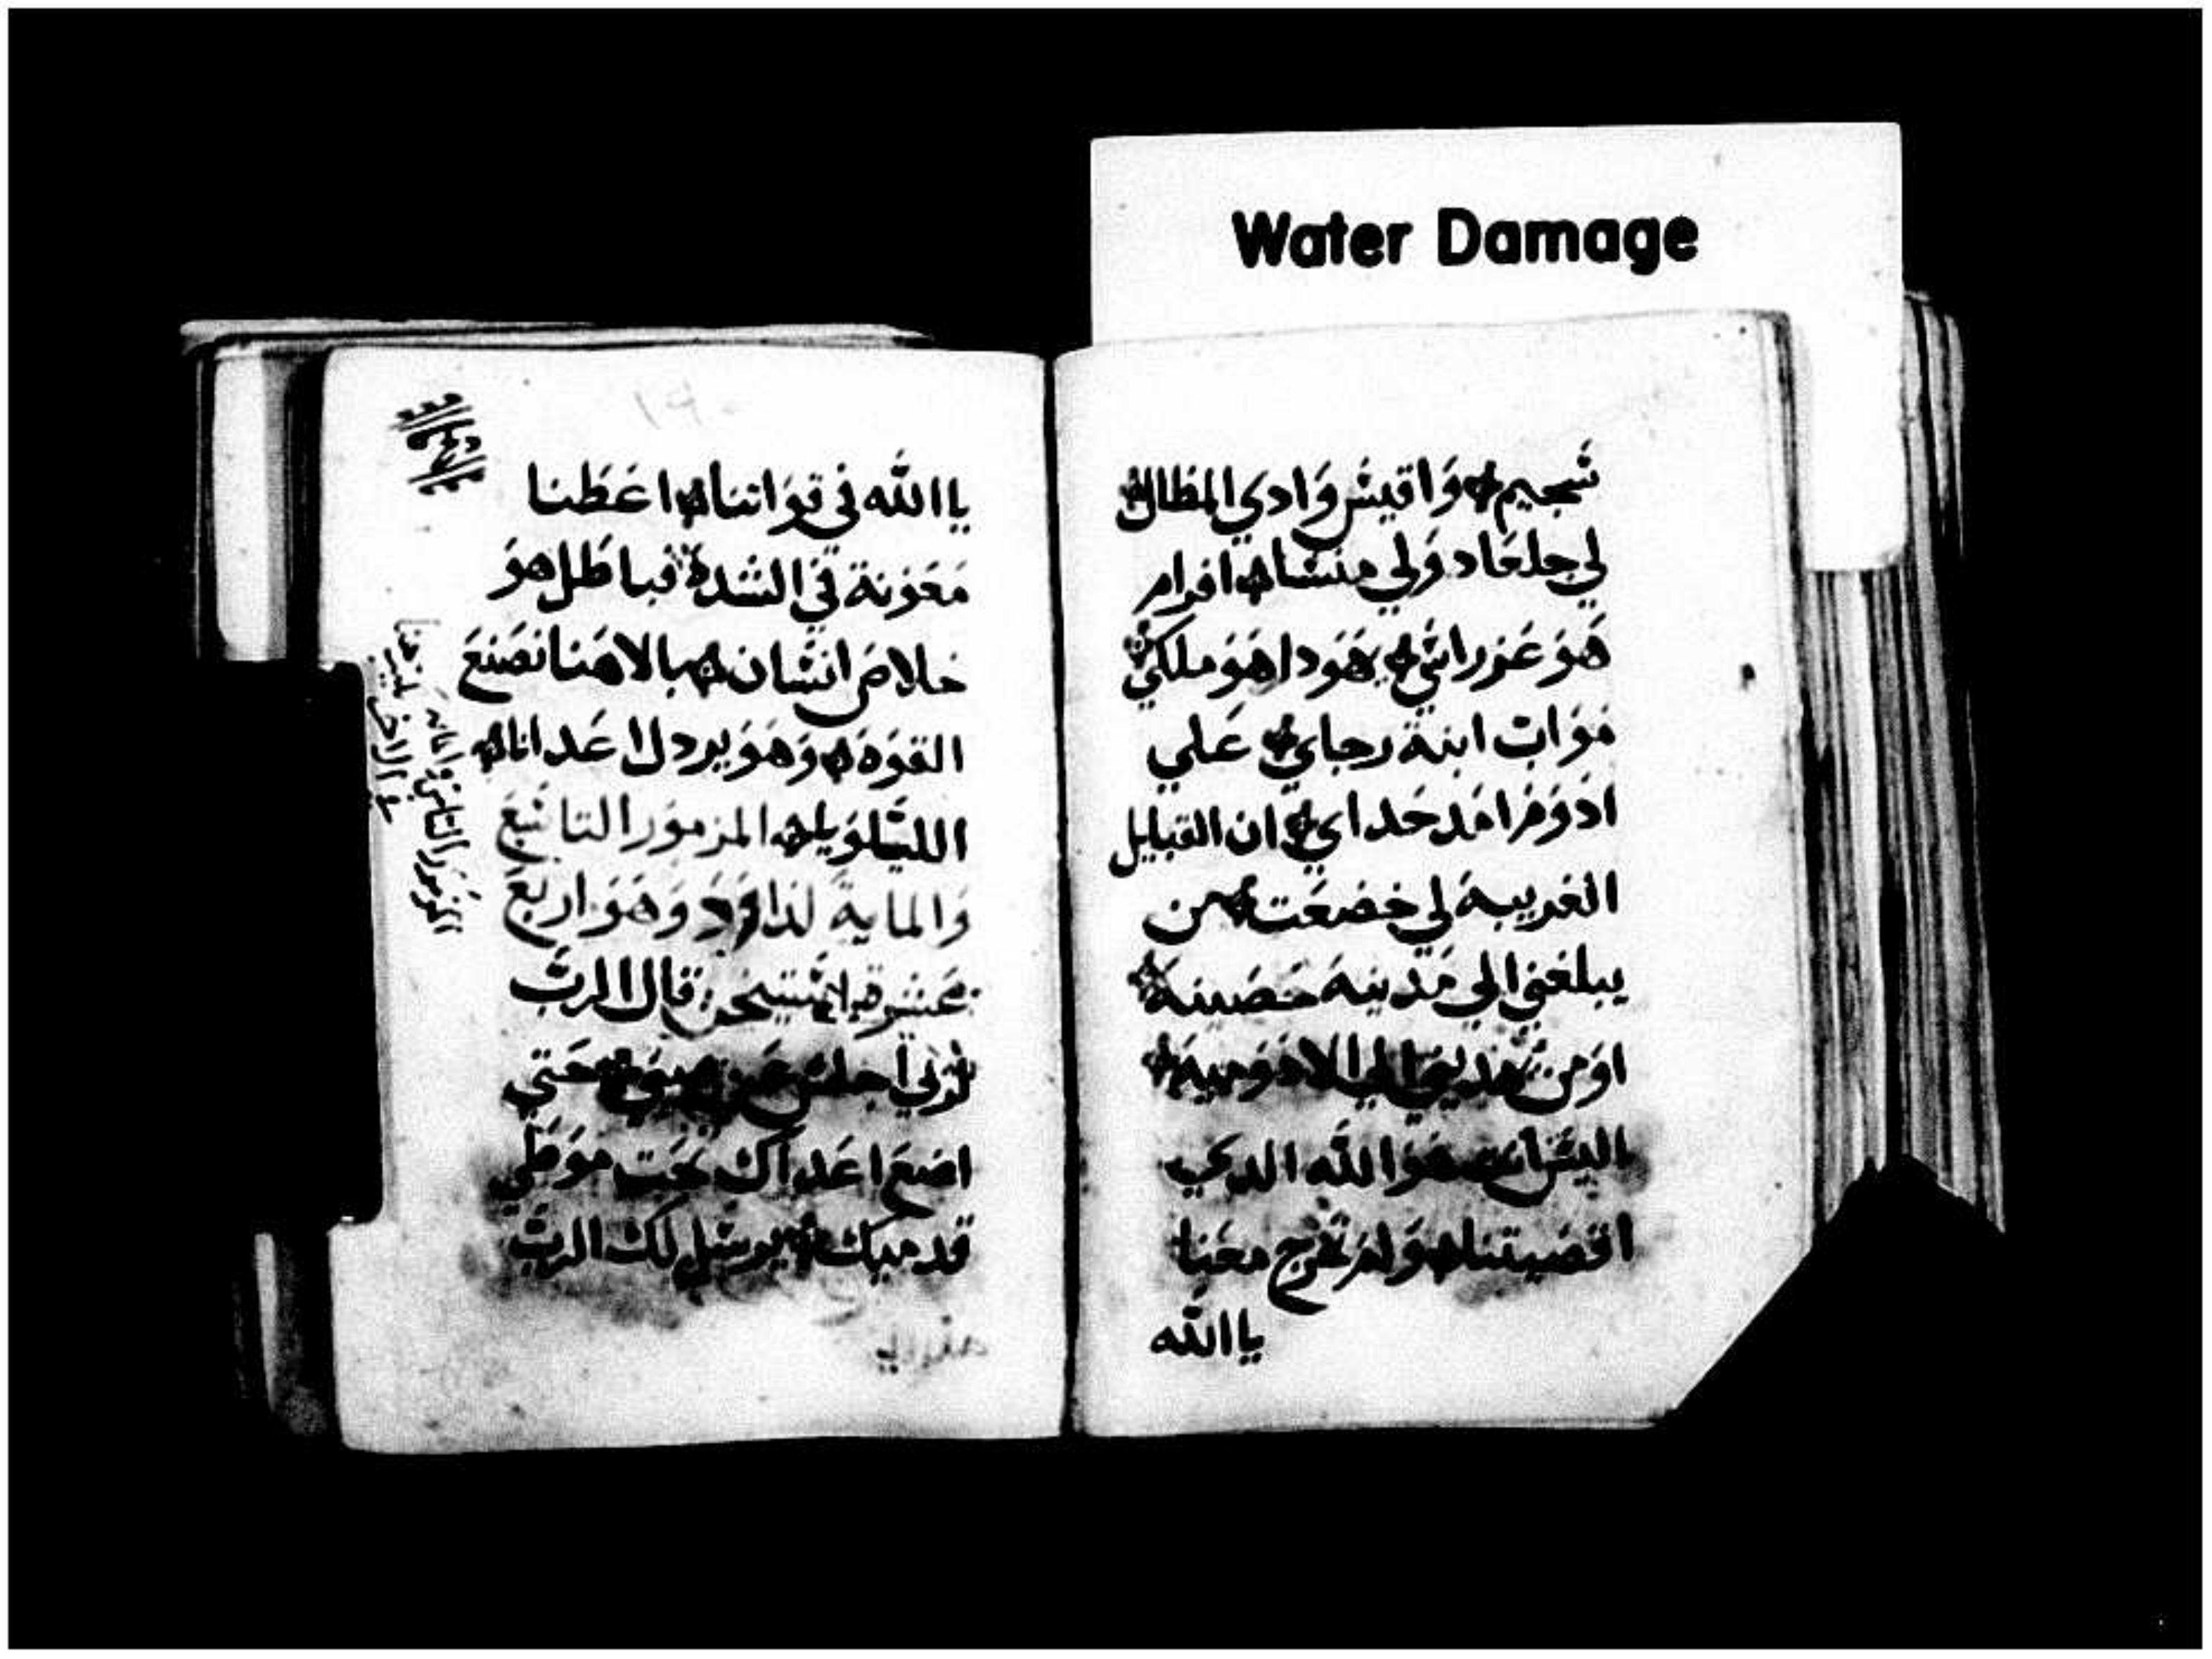 Water Damage
شجيم وَاقيسْ وَادي المظال
لي جلعَاد وَلي منسَا افرام
هَوَ عَزراسَي يهَودا هَوَ ملكي
مَوَاب ابنة رجاي عَلي
ادَوَم امَد حَداي ان القبايل
الغريبهَ لي خضعَت من
يبلغني الي مَدينهَ حَصَينهَ
اوَ من يهديني الي الادَوَميهَ
اليسَ انت هَوَ الله الدي
اقصَيتنا وَلم تخرج معَنا
يا الله
١٩٠
يا الله في قوَاتنا اعَطنا
مَعَوَنة في الشدة فباطل هوَ
خلاصَ انسَان بالاهَنا نصَنعَ
القوَةَ وَهَوَ يردل اعَدانا
الليلوَيا المزمَوَر التاسَعَ
وَالمايةَ لدَاوَدَ وَهَوَ اربعَ
عَشرة قال الربَ
لرَبي اجلسَ عَن يمينيَ حَتي
اضعَ اعَداك تحَت موَطي
قدميك يرسَل لك الربَ